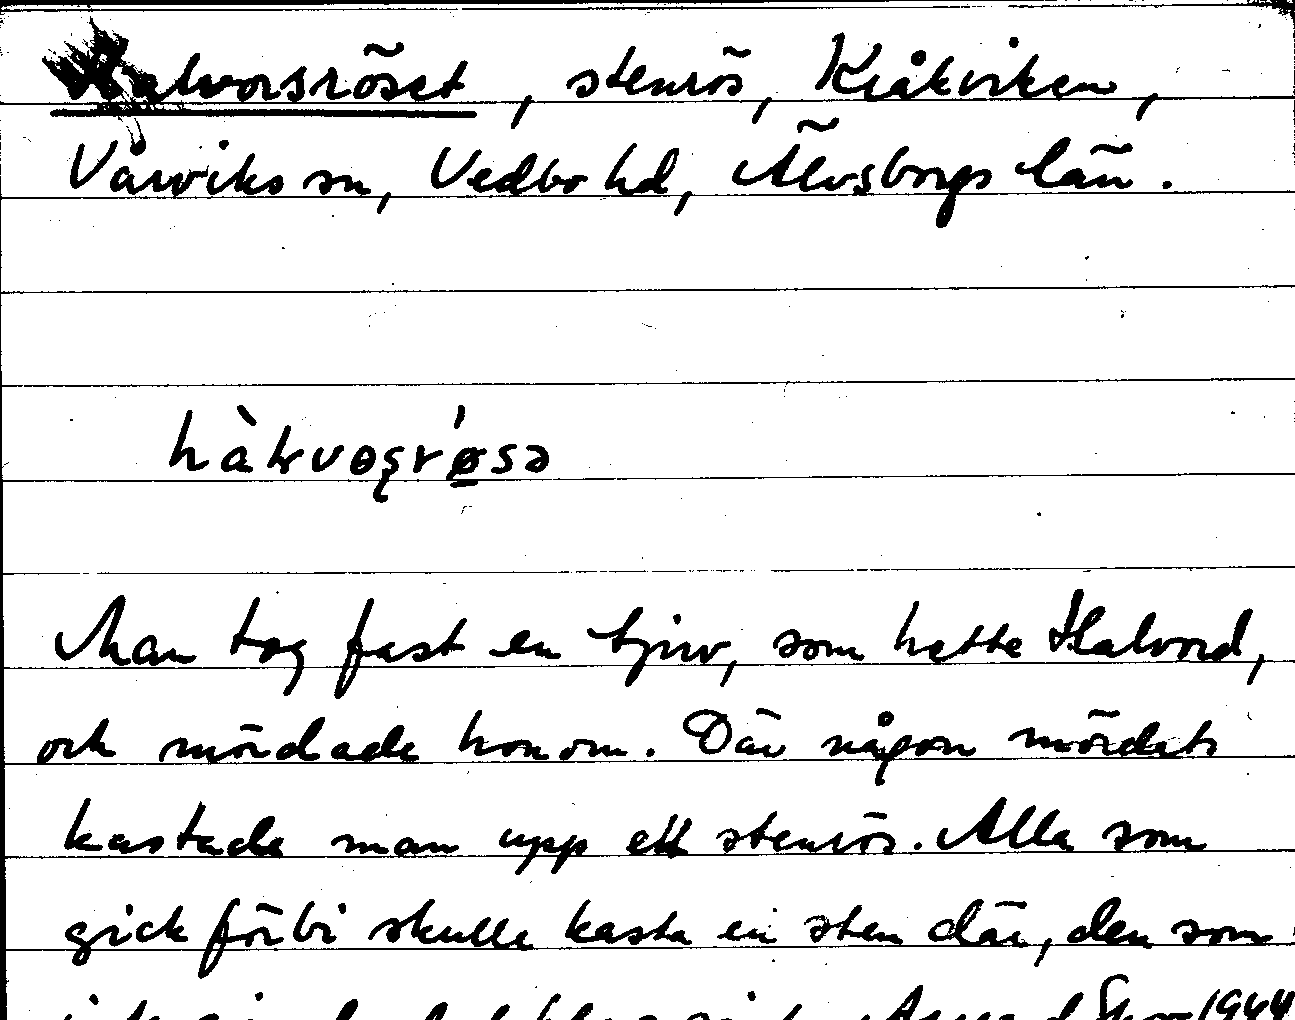 Halvorsröset, stenrös, Kråkviken,
Vårviks sn, Vedbo hd, Älvsborgs län.
Man tog fast en tjuv, som hette Halvord,
och mördade honom. Där någon mördats
kastade man upp ett stenrös. Alla som
gick förbi skulle kasta en sten där, den som
1944